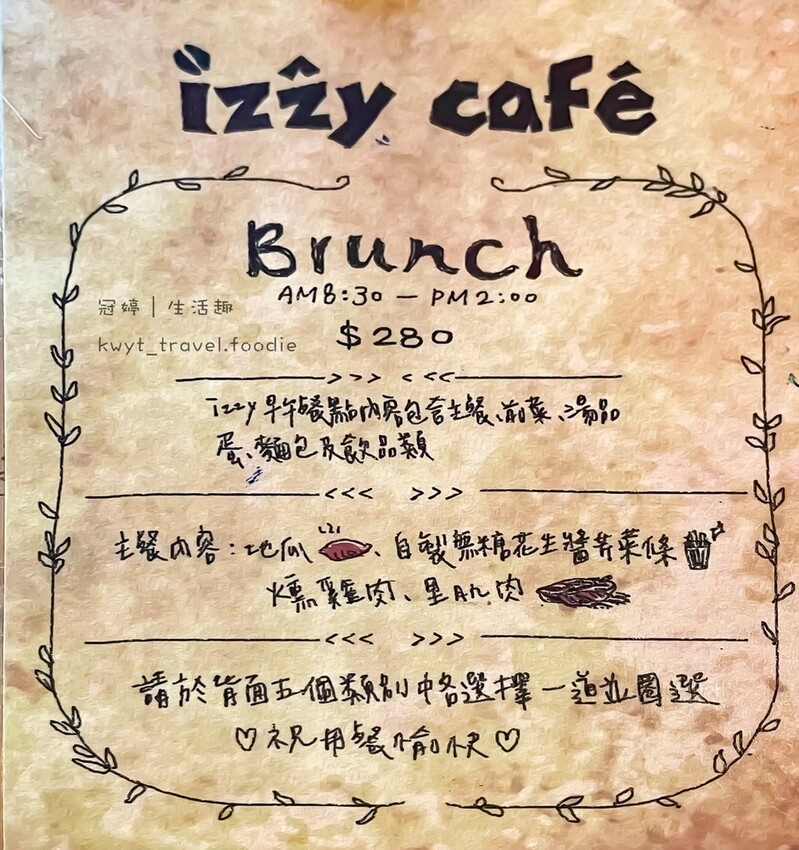 izzy café
Brunch
AM8:30 — PM2:00
冠婷｜生活趣
$280
kwyt_travel.foodie
izzy早午餐點內容包含主餐、前菜、湯品
蛋、麵包及飲品類
主餐內容：地瓜、自製無糖花生醬芋菜條
燻雞肉、里肌肉
請於背面五個類別中各選擇一道並圈選
♡祝用餐愉快♡